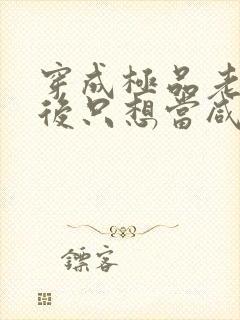 穿成極品老
後只想當咸
鏢客